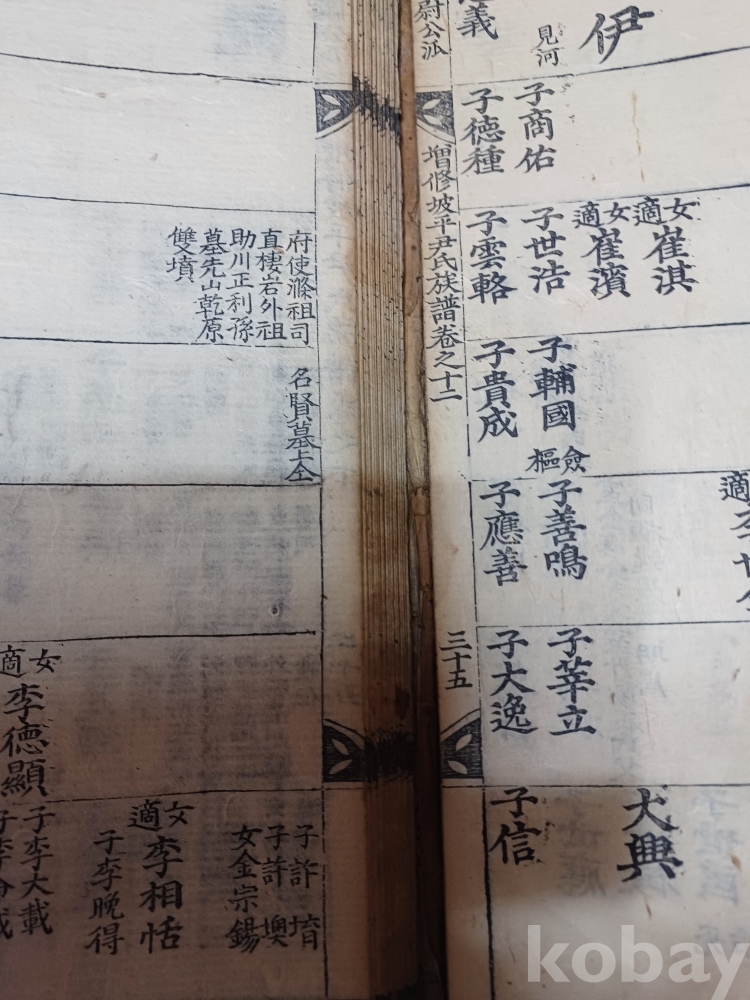 伊
見河
義
尉公派
子商佑
子德種
增修坡平尹氏族譜卷之十二
三十五
女適崔淇
女適崔濱
子世浩
子雲輅
子輔國
僉樞
子貴成
適李
子善鳴
子應善
子莘立
子大逸
大興
子信
府使滌祖司
直棲岩外祖
助川正利孫
墓先山乾原
雙墳
名賢墓上仝
女適李德顯
子許堉
子許墺
女金宗鍚
女適李相恬
子李晩得
子李大載
kobay